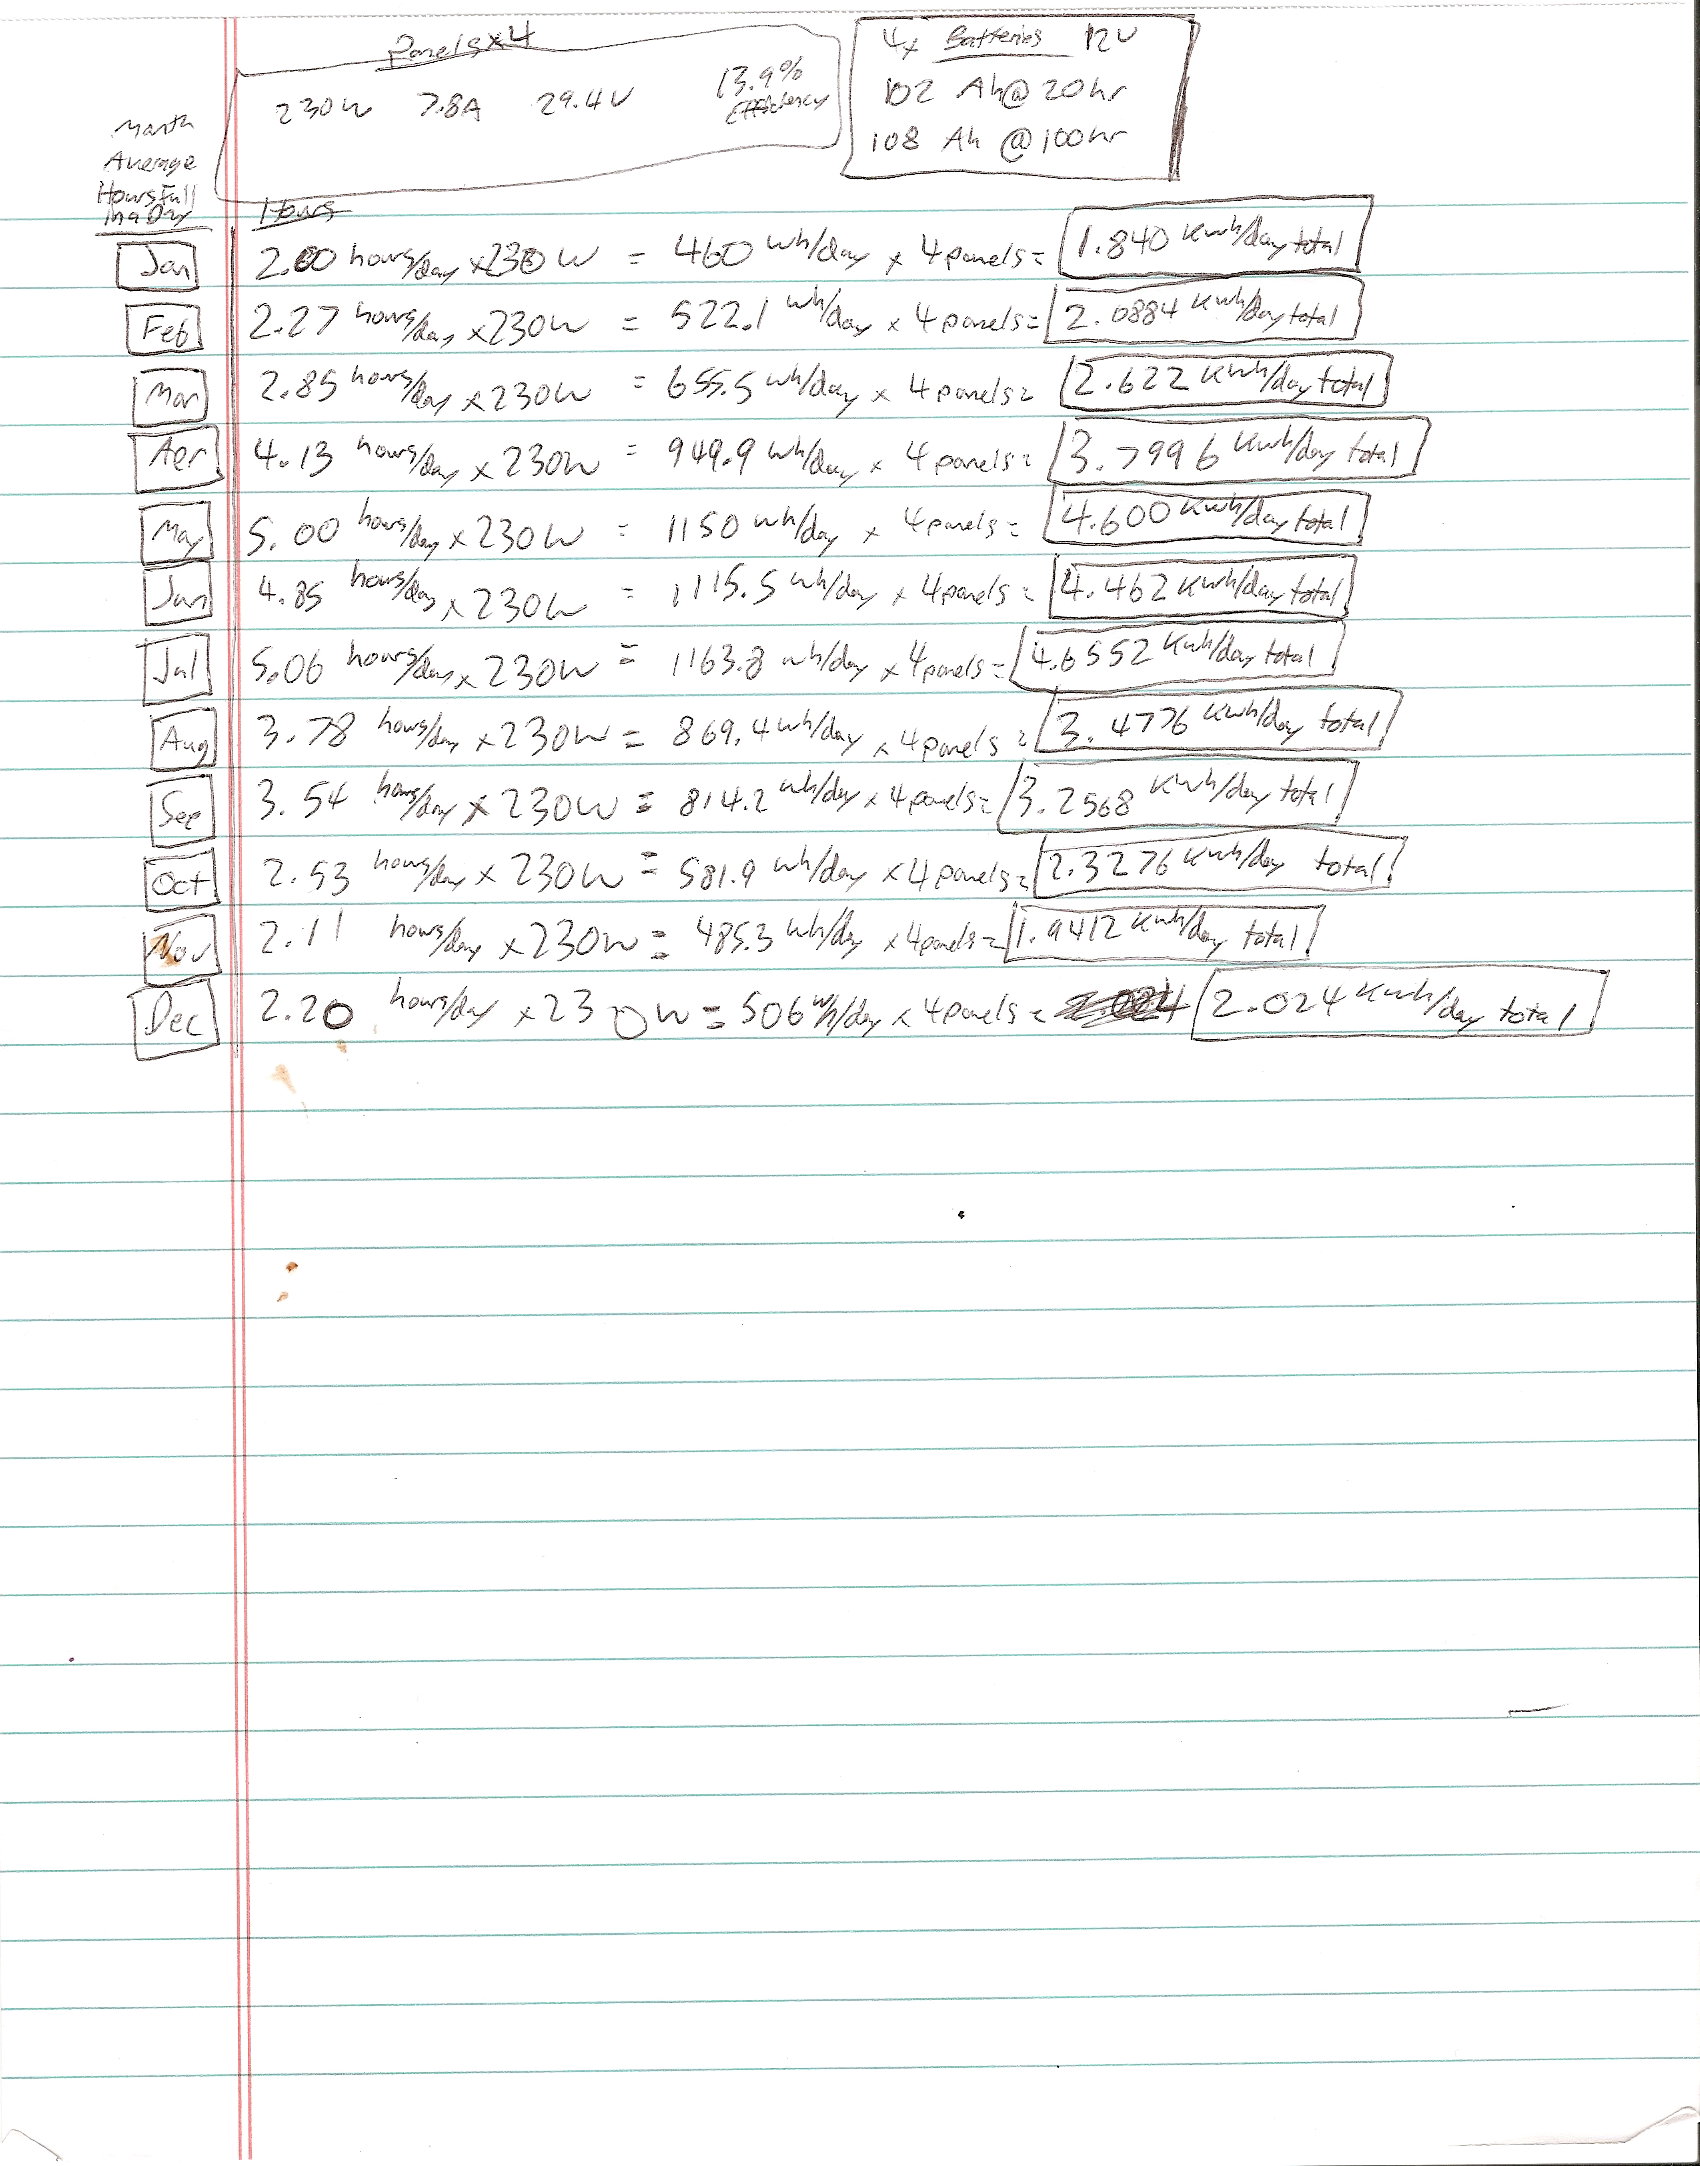 Panels x4
230W 7.8A 29.4V 13.9%
Efficiency
4x Batteries 12V
102 Ah@20hr
108 Ah @100hr
Month
Average
Hours Full
In a Day
Hours
Jan 2.00 hours/day x230W = 460 Wh/day x 4panels= 1.840 Kwh/day total
Feb 2.27 hours/day x230W = 522.1 Wh/day x 4panels= 2.0884 Kwh/day total
Mar 2.85 hours/day x230W = 655.5 Wh/day x 4panels= 2.622 Kwh/day total
Apr 4.13 hours/day x230W = 949.9 Wh/day x 4panels= 3.7996 Kwh/day total
May 5.00 hours/day x230W = 1150 Wh/day x 4panels= 4.600 Kwh/day total
Jun 4.85 hours/day x230W = 1115.5 Wh/day x 4panels= 4.462 Kwh/day total
Jul 5.06 hours/day x230W = 1163.8 Wh/day x4panels= 4.6552 Kwh/day total
Aug 3.78 hours/day x230W = 869.4 Wh/day x4panels= 3.4776 Kwh/day total
Sep 3.54 hours/day x230W = 814.2 Wh/day x4panels= 3.2568 Kwh/day total
Oct 2.53 hours/day x230W = 581.9 Wh/day x4panels= 2.3276 Kwh/day total
Nov 2.11 hours/day x230W = 485.3 Wh/day x4panels= 1.9412 Kwh/day total
Dec 2.20 hours/day x230W = 506 Wh/day x 4panels= 2.024 2.024 Kwh/day total